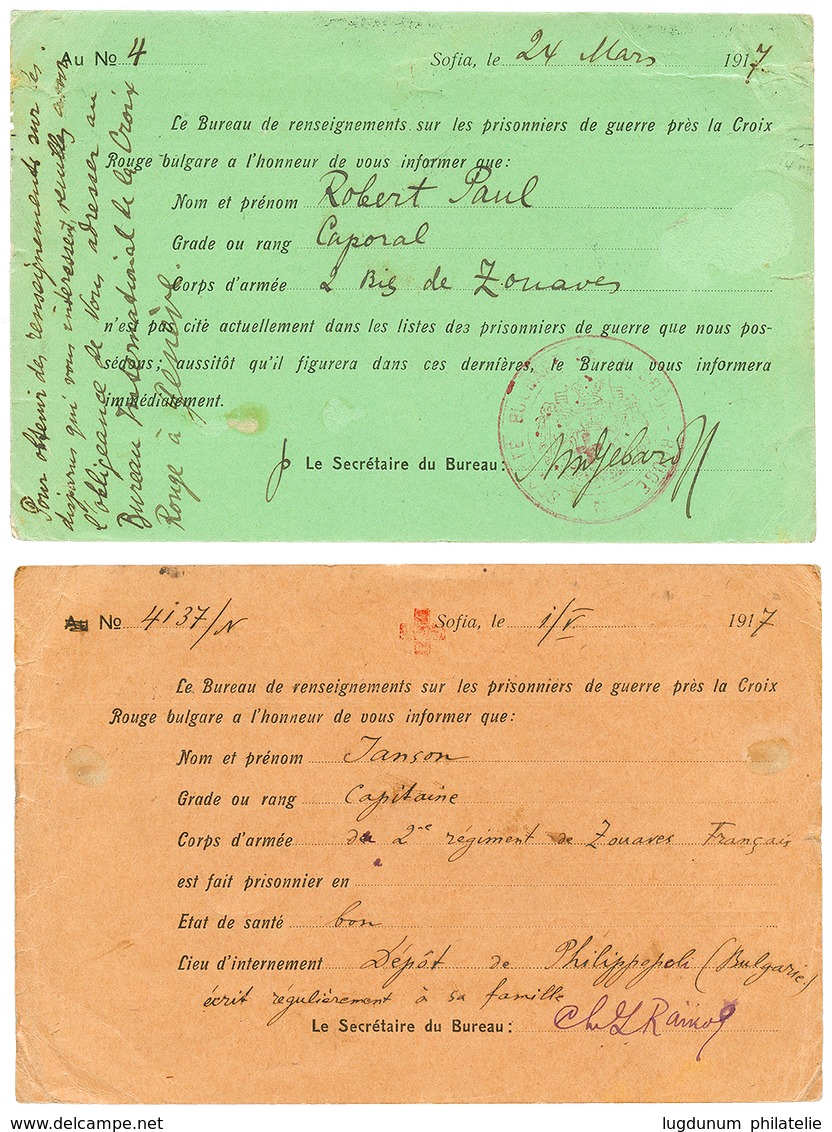 Au No 4 Sofia, le 24 Mars 1917.
Le Bureau de renseignements sur les prisonniers de guerre près la Croix
Rouge bulgare a l'honneur de vous informer que:
Nom et prénom Robert Paul
Grade ou rang Caporal
Corps d'armée 2 Bis de Zouaves
n'est pas cité actuellement dans les listes des prisonniers de guerre que nous pos-
sédons; aussitôt qu'il figurera dans ces dernières, le Bureau vous informera
immédiatement.
Le Secrétaire du Bureau:
Pour obtenir des renseignements sur les
disparus qui vous intéressent, veuillez avoir
l'obligeance de vous adresser au
Bureau International de la Croix
Rouge à Genève.
Au No 4137/N Sofia, le 1/V 1917
Le Bureau de renseignements sur les prisonniers de guerre près la Croix
Rouge bulgare a l'honneur de vous informer que:
Nom et prénom Janson
Grade ou rang Capitaine
Corps d'armée du 2me régiment de Zouaves Français
est fait prisonnier en
Etat de santé bon
Lieu d'internement Dépôt de Philippopoli (Bulgarie)
écrit régulièrement à sa famille
Le Secrétaire du Bureau:
www.delcampe.net lugdunum philatelie